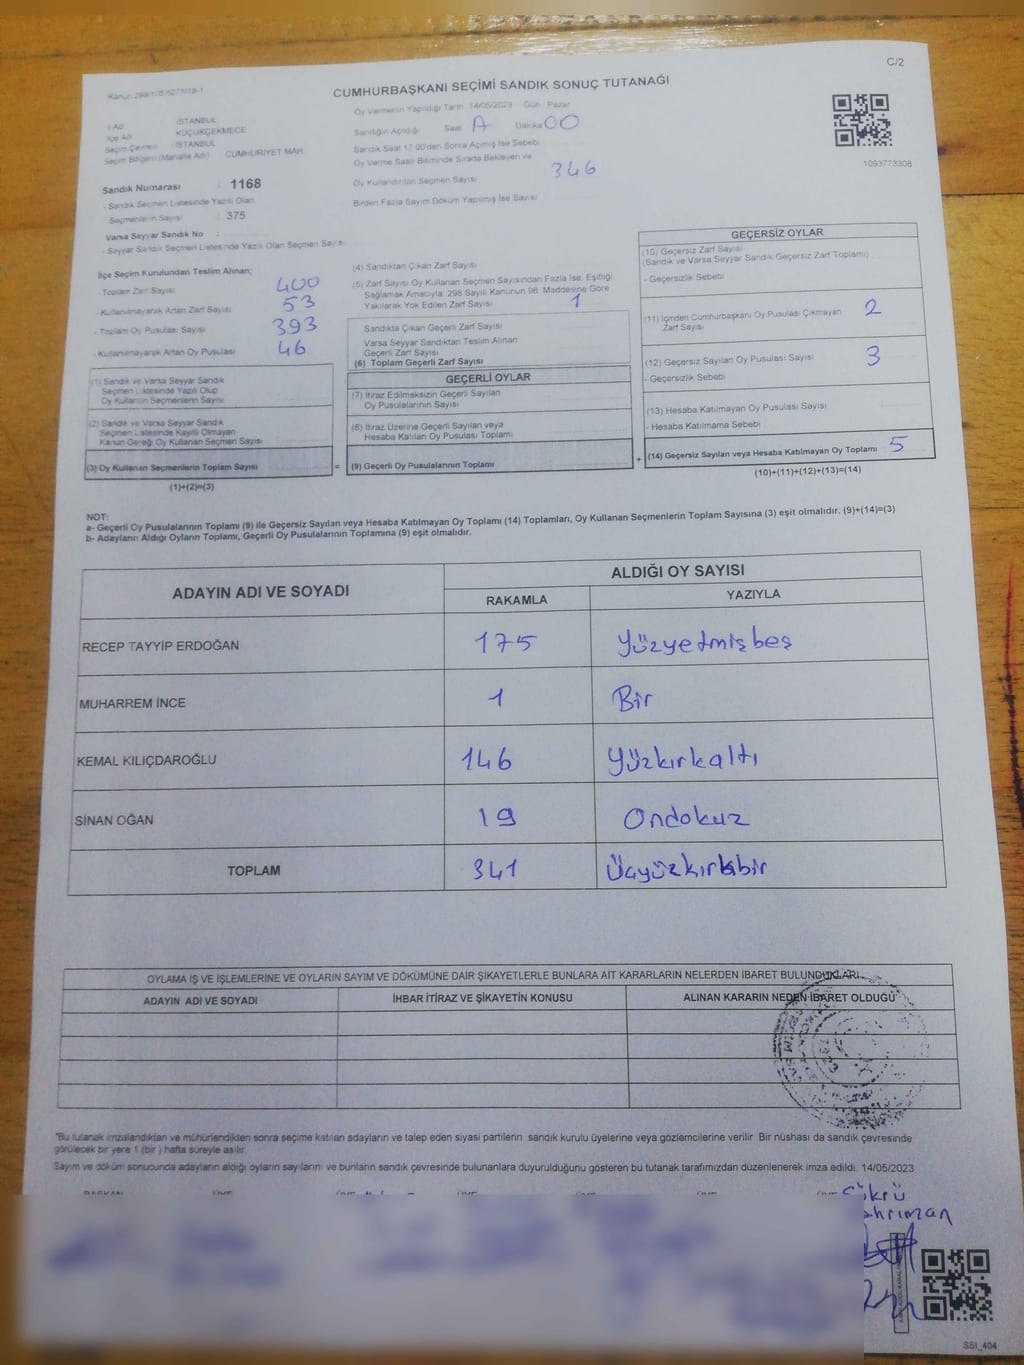 C/2
Kanun 298/1/B 5271/18-1
CUMHURBAŞKANI SEÇİMİ SANDIK SONUÇ TUTANAĞI
Oy Vermenin Yapıldığı Tarih 14/05/2023 Gün: Pazar
İl Adı : İSTANBUL
İlçe Adı : KÜÇÜKÇEKMECE
Seçim Çevresi : İSTANBUL
Seçim Bölgesi (Mahalle Adı) : CUMHURİYET MAH.
Sandığın Açıldığı Saat A Dakika 00
Sandık Saat 17.00'den Sonra Açılmış İse Sebebi
Oy Verme Saati Bitiminde Sırada Bekleyen ve
Oy Kullandırılan Seçmen Sayısı 346
Birden Fazla Sayım Döküm Yapılmış İse Sayısı
1093773308
Sandık Numarası : 1168
- Sandık Seçmen Listesinde Yazılı Olan
Seçmenlerin Sayısı : 375
Varsa Seyyar Sandık No :
- Seyyar Sandık Seçmen Listesinde Yazılı Olan Seçmen Sayısı
İlçe Seçim Kurulundan Teslim Alınan;
- Toplam Zarf Sayısı : 400
- Kullanılmayarak Artan Zarf Sayısı : 53
- Toplam Oy Pusulası Sayısı : 393
- Kullanılmayarak Artan Oy Pusulası : 46
(1) Sandık ve Varsa Seyyar Sandık
Seçmen Listesinde Yazılı Olup
Oy Kullanan Seçmenlerin Sayısı
(2) Sandık ve Varsa Seyyar Sandık
Seçmen Listesinde Kayıtlı Olmayan
Kanun Gereği Oy Kullanan Seçmen Sayısı
(3) Oy Kullanan Seçmenlerin Toplam Sayısı
(1)+(2)=(3)
=
(4) Sandıktan Çıkan Zarf Sayısı
(5) Zarf Sayısı Oy Kullanan Seçmen Sayısından Fazla İse, Eşitliği
Sağlamak Amacıyla, 298 Sayılı Kanunun 98. Maddesine Göre
Yakılarak Yok Edilen Zarf Sayısı 1
Sandıkta Çıkan Geçerli Zarf Sayısı
Varsa Seyyar Sandıktan Teslim Alınan
Geçerli Zarf Sayısı
(6) Toplam Geçerli Zarf Sayısı
GEÇERLİ OYLAR
(7) İtiraz Edilmeksizin Geçerli Sayılan
Oy Pusulalarının Sayısı
(8) İtiraz Üzerine Geçerli Sayılan veya
Hesaba Katılan Oy Pusulası Toplamı
(9) Geçerli Oy Pusulalarının Toplamı
+
GEÇERSİZ OYLAR
(10) Geçersiz Zarf Sayısı
(Sandık ve Varsa Seyyar Sandık Geçersiz Zarf Toplamı)
- Geçersizlik Sebebi
(11) İçinden Cumhurbaşkanı Oy Pusulası Çıkmayan
Zarf Sayısı 2
(12) Geçersiz Sayılan Oy Pusulası Sayısı 3
- Geçersizlik Sebebi
(13) Hesaba Katılmayan Oy Pusulası Sayısı
- Hesaba Katılmama Sebebi
(14) Geçersiz Sayılan veya Hesaba Katılmayan Oy Toplamı 5
(10)+(11)+(12)+(13)=(14)
NOT:
a- Geçerli Oy Pusulalarının Toplamı (9) ile Geçersiz Sayılan veya Hesaba Katılmayan Oy Toplamı (14) Toplamları, Oy Kullanan Seçmenlerin Toplam Sayısına (3) eşit olmalıdır. (9)+(14)=(3)
b- Adayların Aldığı Oyların Toplamı, Geçerli Oy Pusulalarının Toplamına (9) eşit olmalıdır.
ADAYIN ADI VE SOYADI
ALDIĞI OY SAYISI
RAKAMLA YAZIYLA
RECEP TAYYİP ERDOĞAN 175 Yüzyetmişbeş
MUHARREM İNCE 1 Bir
KEMAL KILIÇDAROĞLU 146 Yüzkırkaltı
SİNAN OĞAN 19 Ondokuz
TOPLAM 341 Üçyüzkırkbir
OYLAMA İŞ VE İŞLEMLERİNE VE OYLARIN SAYIM VE DÖKÜMÜNE DAİR ŞİKAYETLERLE BUNLARA AİT KARARLARIN NELERDEN İBARET BULUNDUKLARI
ADAYIN ADI VE SOYADI İHBAR İTİRAZ VE ŞİKAYETİN KONUSU ALINAN KARARIN NEDEN İBARET OLDUĞU
*Bu tutanak imzalandıktan ve mühürlendikten sonra seçime katılan adayların ve talep eden siyasi partilerin sandık kurulu üyelerine veya gözlemcilerine verilir. Bir nüshası da sandık çevresinde
görülecek bir yere 1 (bir) hafta süreyle asılır.
Sayım ve döküm sonucunda adayların aldığı oyların sayılarını ve bunların sandık çevresinde bulunanlara duyurulduğunu gösteren bu tutanak tarafımızdan düzenlenerek imza edildi. 14/05/2023
Şükrü
SSI_404